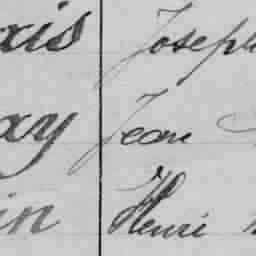 ais Joseph
ay Jean
in Henri